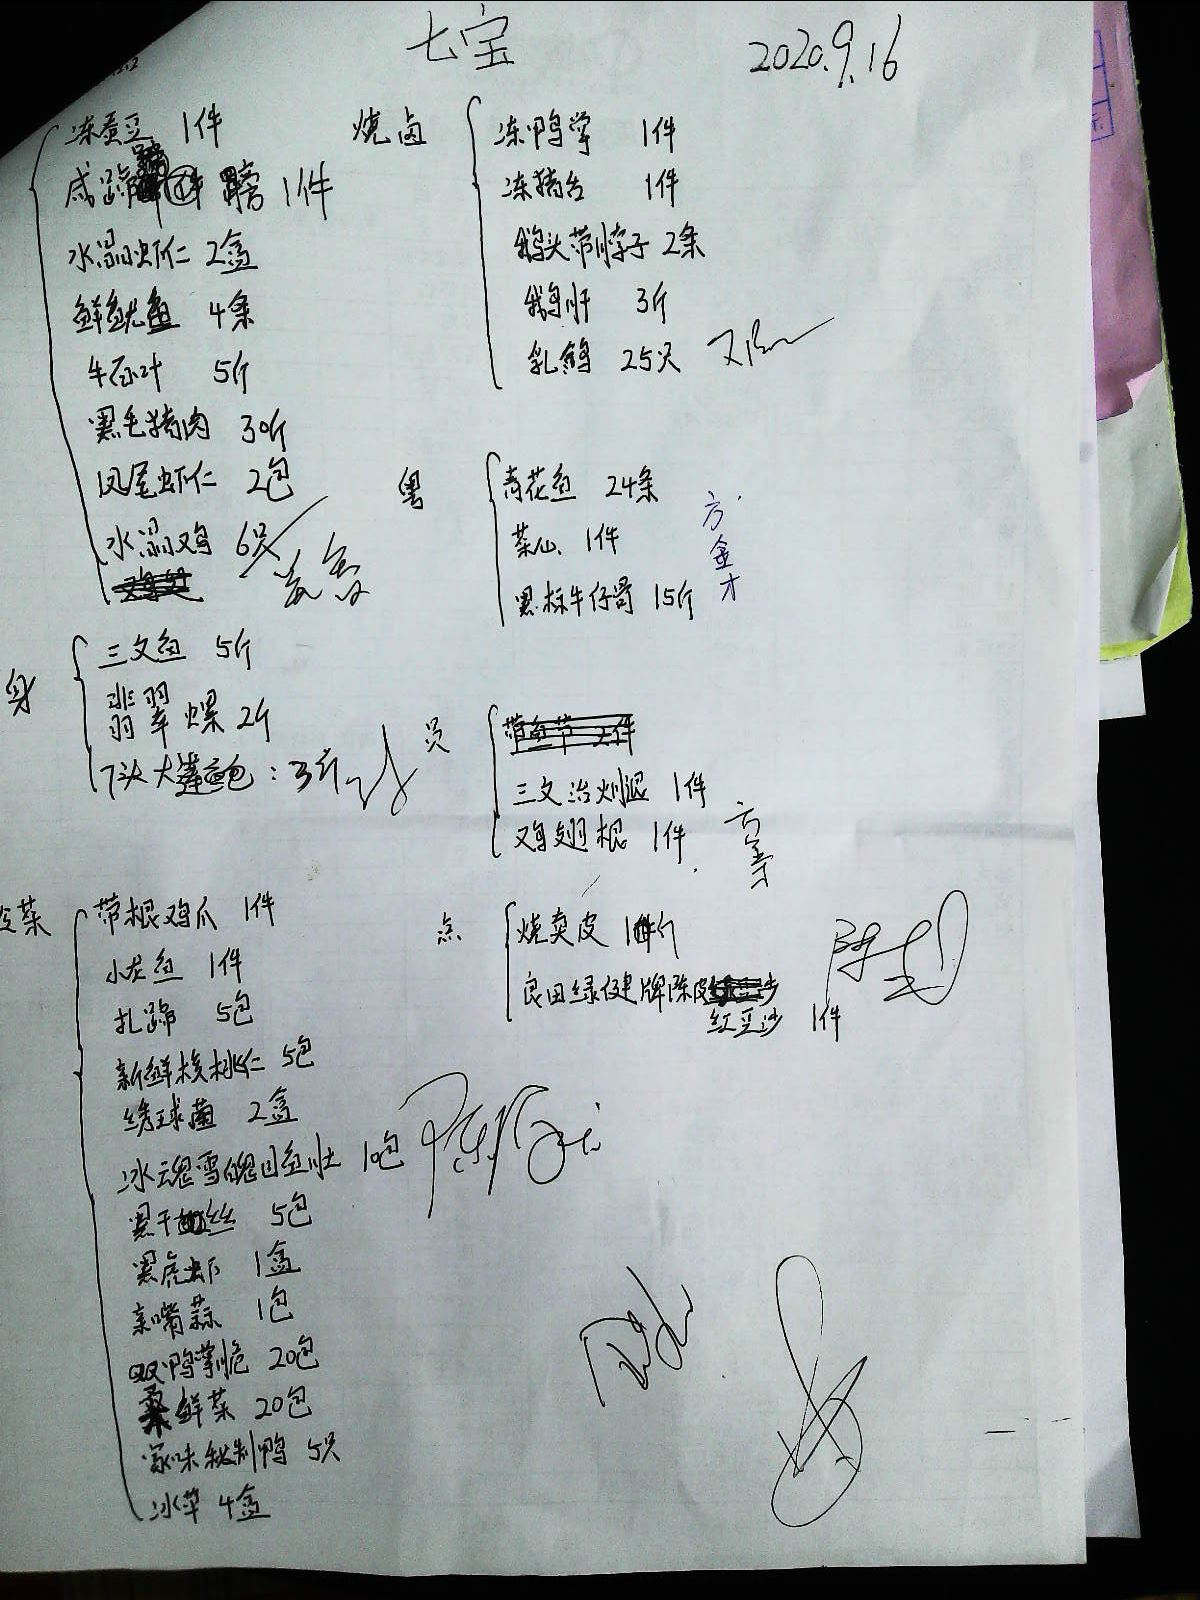 七宝
2020.9.16
冻蚕豆 1件
咸蹄膀 1件
水溺虾仁 2盒
鲜鱿鱼 4条
牛百叶 5斤
黑毛猪肉 30斤
凤尾虾仁 2包
水溺鸡 6只
身
三文鱼 5斤
翡翠螺 2斤
7头大连鲍:3斤
冷菜
带根鸡爪 1件
小龙鱼 1件
扎蹄 5包
新鲜核桃仁 5包
绣球菌 2盒
冰魂雪魄目鱼肚 1包
黑千丝 5包
黑虎虾 1盒
亲嘴蒜 1包
双鸭掌脆 20包
鲜菜 20包
家味秘制鸭 5只
冰草 4盒
烧卤
冻鸭掌 1件
冻猪舌 1件
鹅头带脖子 2条
鹅肝 3斤
乳鸽 25只
粤
青花鱼 24条
菜心 1件
黑标牛仔骨 15斤
方金才
员
带鱼节 2件
三文治火腿 1件
鸡翅根 1件
点
烧卖皮 1斤
良田绿健牌陈皮
红豆沙 1件